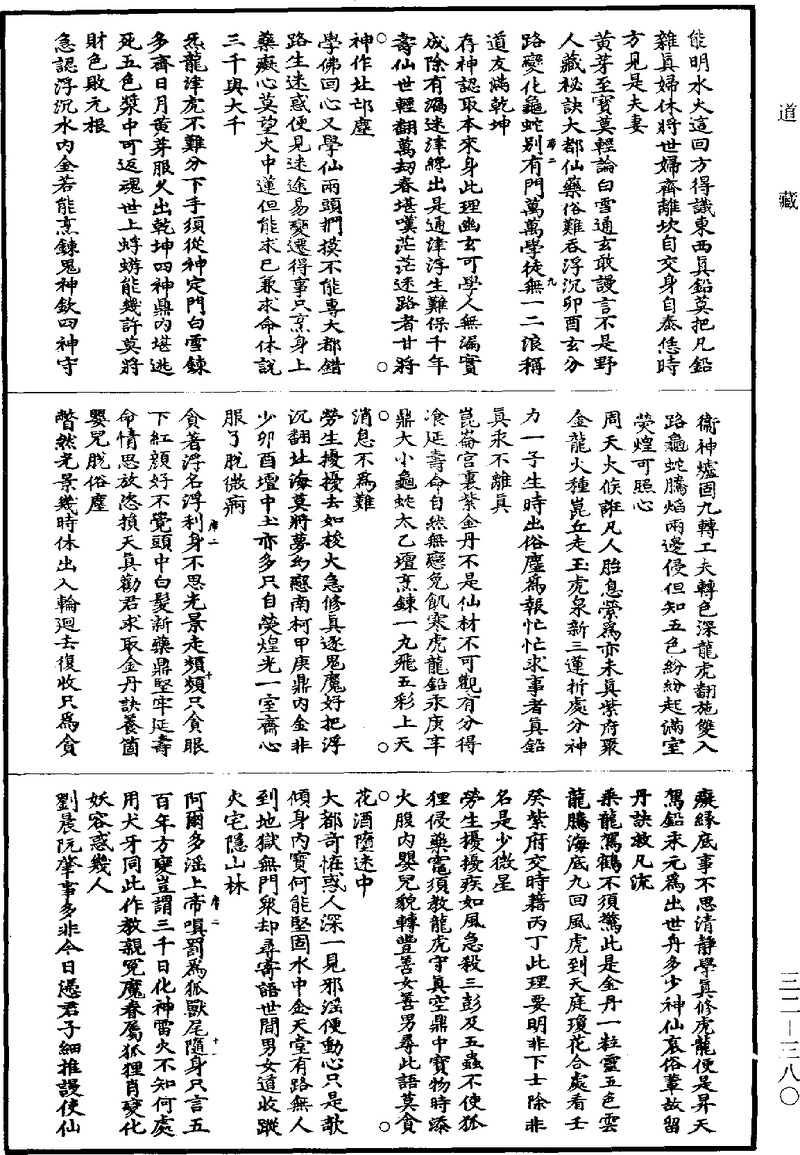 道藏
能明水火這回方得識東西真鉛莫把凡鉛
雜真婦休將世婦齊離坎自交身自泰恁時
方見是夫妻
黃芽至寶莫輕論白雪通玄敢謾言不是野
人藏祕訣大都仙藥俗難吞浮沉卯酉玄分
路變化龜蛇別有門萬萬學徒無一二浪稱
道友滿乾坤
存神認取本來身此理幽玄可學人無漏實
成除有漏迷津纔出是通津浮生難保千年
壽仙世輕翻萬劫春堪嘆茫茫迷路者廿將
神作北邙塵
學佛回心又學仙兩頭捫摸不能專大都錯
路生迷惑便見迷途易變遷得事只烹身上
藥癡心莫望火中蓮但能求己兼求命休說
三千與大千
炁龍津虎不難分下手須從神定門白雪鍊
多齋日月黃芽服久出乾坤四神鼎內堪逃
死五色漿中可返魂世上蜉蝣能幾許莫將
財色敗元根
急認浮沉水內金若能烹鍊鬼神欽四神守
衞神爐固九轉工夫轉色深龍虎翻施雙入
路龜蛇騰焰兩邊侵但知五色紛紛起滿室
熒煌可照心
周天火候誑凡人胎息縈為亦未真紫府聚
金龍火種崑丘走玉虎泉新三蓮折處分神
力一子生時出俗塵為報忙忙求事者真鉛
真汞不離真
崑崙宮裏紫金丹不是仙材不可觀有分得
飡延壽命自然無戀免飢寒虎龍鉛汞庚辛
鼎大小龜蛇太乙壇烹鍊一九飛五彩上天
消息不為難
勞生擾擾去如梭火急修真逐鬼魔好把浮
沉翻北海莫將夢幻戀南柯甲庚鼎內金非
少卯酉壇中土亦多只自熒煌光一室齋心
服了脫微痾
貪著浮名浮利身不思光景走頻頻只貪眼
下紅顏好不覺頭中白髮新藥鼎堅牢延壽
命情思放恣損天真勸君求取金丹訣養箇
嬰兒脫俗塵
瞥然光景幾時休出入輪迴去復收只為貪
癡緣底事不思清靜學真修虎龍便是昇天
駕鉛汞元為出世舟多少神仙哀俗輩故留
丹訣救凡流
乘龍駕鶴不須驚此是金丹一粒靈五色雲
龍騰海底九回風虎到天庭瓊花合處看壬
癸紫府交時藉丙丁此理要明非下士除非
名是少微星
勞生擾擾疾如風急殺三彭及五蟲不使狐
狸侵藥竈須教龍虎守真空鼎中寶物時添
火腹內嬰兒貌轉豐善女善男尋此語莫貪
花酒墮迷中
大都奇怪惑人深一見邪淫便動心只是欹
傾身內寶何能堅固水中金天堂有路無人
到地獄無門眾却尋寄語世間男女道收蹤
火宅隱山林
阿爾多淫上帝嗔罰為狐獸尾隨身只言五
百年方變豈謂三千日化神雷火不知何處
用犬牙同此作教親冤魔眷屬狐狸肖變化
妖容惑幾人
劉晨阮肇事多非今日憑君子細推謾使仙
三二—三八〇